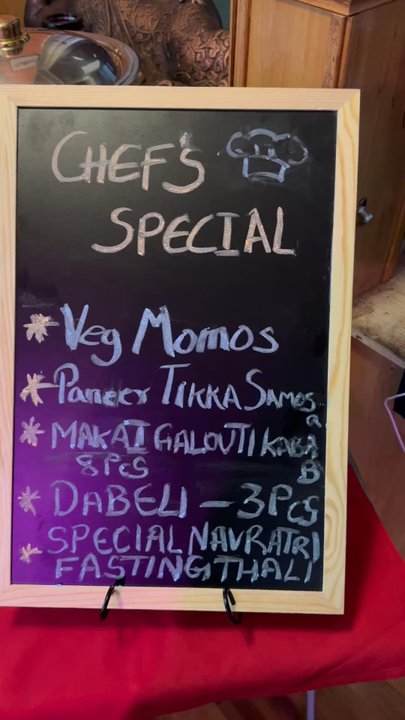 CHEF'S
SPECIAL
* Veg Momos
* Paneer TIKKA SAMOSa
* MAKAI GALOUTI KABAB
8 PCS
* DABELI - 3 PCS
* SPECIAL NAVRATRI
FASTING THALI